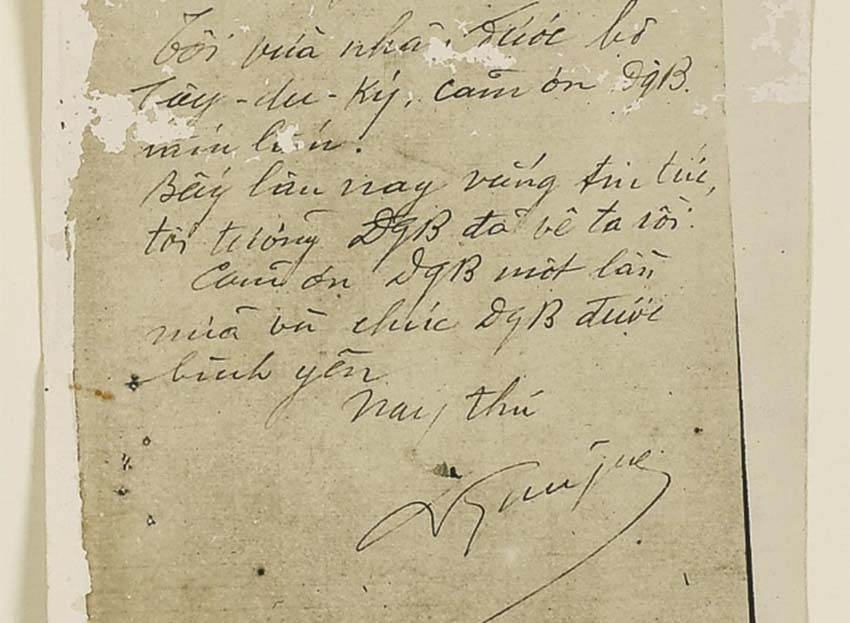 Tôi vừa nhận được bộ
Tây-du-Ký, cảm ơn ĐgB.
Bấy lâu nay vắng tin tức,
tôi tưởng ĐgB đã về ta rồi.
Cảm ơn ĐgB một lần
nữa và chúc ĐgB được
bình yên
Nay thư